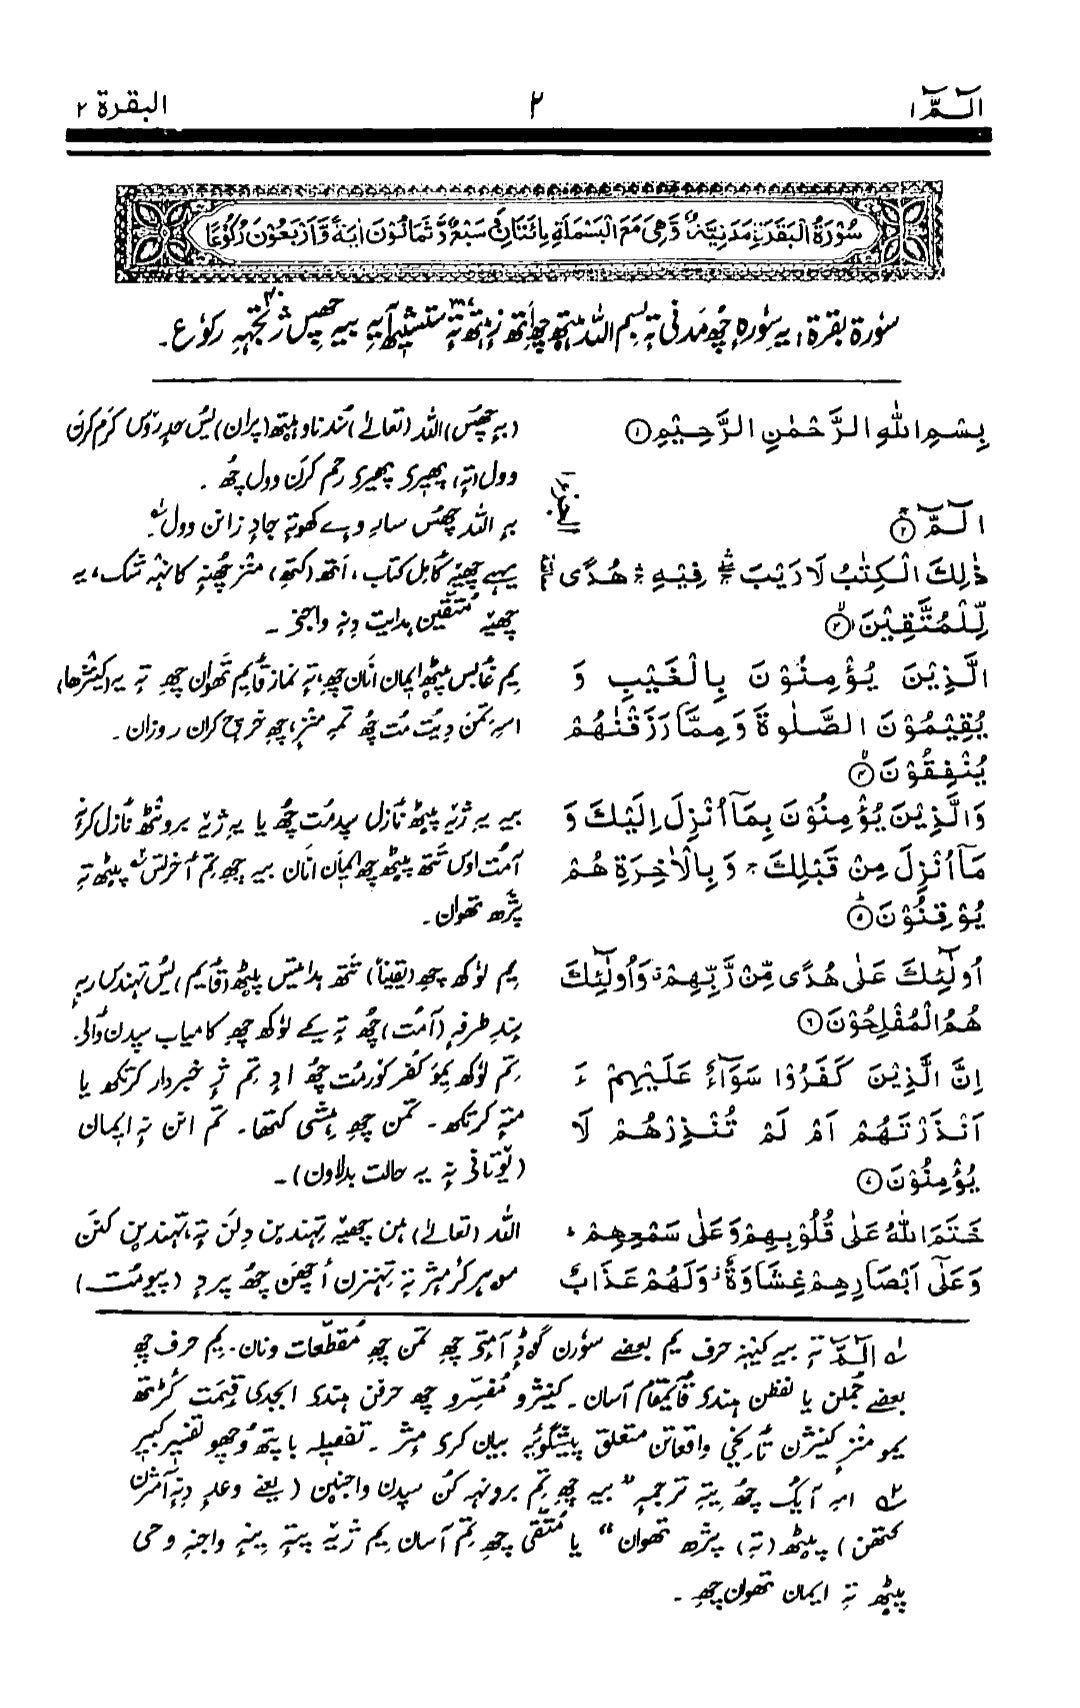 الٓمّٓ ١
٢
البقرة ٢
سُوْرَةُ الْبَقَرَةِ مَدَنِيَّةٌ وَّهِيَ مَعَ الْبَسْمَلَةِ مِائَتَانِ سَبْعٌ وَّثَمَانُوْنَ اٰيَةً وَّاَرْبَعُوْنَ رُكُوْعًا
سوٗرۃ بقرۃ، یہ سوٗرہ چُھ مَدنی تہٕ بسم اللہ ہیٚتھ چھِ اَتھ زٕ ہَتھ تہٕ ستشیٖتھ آیہٕ بییہٕ چھِس ژٔتجِہہ رکوٗع۔
بِسْمِ اللهِ الرَّحْمٰنِ الرَّحِيْمِ ١
(بہٕ چھُس) اللہ (تعالےٰ) سُند ناو ہیٚتھ (پران) یُس حدٕ روٚس کَرَم کرَن
وول (تہٕ) پھیری پھیری رحم کرَن وول چُھ ۔
الٓمّٓ ٢
بہٕ اللہ چھُس سارِ وے کھوتہٕ جادٕ زانن وول ۔
ذٰلِكَ الْكِتٰبُ لَا رَيْبَ ۛ فِيْهِ ۛ هُدًى
لِّلْمُتَّقِيْنَ ٣
یہے چھےٚ کٲمِل کتاب، اَتھ (کتھِ) منز چُھنہٕ کانٛہہ شک، یہ
چھےٚ مُتّقین ہدایت دِنہٕ واجنۍ ۔
الَّذِيْنَ يُؤْمِنُوْنَ بِالْغَيْبِ وَ
يُقِيْمُوْنَ الصَّلٰوةَ وَمِمَّا رَزَقْنٰهُمْ
يُنْفِقُوْنَ ٤
یِم غٲبس پیٚٹھ ایمان انان چھِ، تہٕ نماز قٲیم تھوان چھِ تہٕ یہ (کینٛژھا)
اسہِ تمن دِیُت مُت چُھ تمہِ منزٕ چھِ خرچ کران روزان ۔
وَالَّذِيْنَ يُؤْمِنُوْنَ بِمَآ اُنْزِلَ اِلَيْكَ وَ
مَآ اُنْزِلَ مِنْ قَبْلِكَ ۚ وَ بِالْاٰخِرَةِ هُمْ
يُوْقِنُوْنَ ٥
بییہٕ یہ ژےٚ پیٚٹھ نٲزل سپدمُت چُھ یا یہ ژےٚ برونٛٹھ نٲزل کرنہٕ
آمُت اوس تَتھ پیٚٹھ چھِ ایمان انان بییہٕ چھِ تِم اٰخرتس پیٚٹھ تہٕ
پژھ تھوان ۔
اُولٰٓئِكَ عَلٰى هُدًى مِّنْ رَّبِّهِمْ ۙ وَ اُولٰٓئِكَ
هُمُ الْمُفْلِحُوْنَ ٦
یِم لوٗکھ چھِ (یقیناً) تَتھ ہدایتس پیٚٹھ (قٲیم) یُس تہندس ربہٕ
سٕندِ طرفہٕ (آمُت) چُھ تہٕ یِمے لوٗکھ چھِ کامیاب سپدن والۍ
اِنَّ الَّذِيْنَ كَفَرُوْا سَوَآءٌ عَلَيْهِمْ ءَ
اَنْذَرْتَهُمْ اَمْ لَمْ تُنْذِرْهُمْ لَا
يُؤْمِنُوْنَ ٧
تِم لوٗکھ یِمو کُفر کوٚرمُت چُھ تِم ژٕ خبردار کرتکھ یا
متہٕ کرتکھ ۔ تمن چھِ ہِشی کتھا ۔ تم انن نہٕ ایمان
(یوٚتانی نہٕ یہ حالت بدلاون) ۔
خَتَمَ اللهُ عَلٰى قُلُوْبِهِمْ وَ عَلٰى سَمْعِهِمْ ؕ
وَ عَلٰٓى اَبْصَارِهِمْ غِشَاوَةٌ ؗ وَ لَهُمْ عَذَابٌ
اللہ (تعالےٰ) ہن چھےٚ تِہندین دِلن تہٕ تہندین کنَن
موہر کرمٕژ تہٕ تہنزن اَچھن چُھ پردٕ (پیومُت)
١؎ الٓمّٓ تہٕ بییہٕ کینہہ حرف یم بعضے سوٗرن گوڈٕ آمتۍ چھِ تمن چھِ مُقطّعات ونان ۔ یم حرف چھِ
بعضے جُملن یا لفظن ہندۍ قٲیمقام آسان ۔ کینٛژو مُفسّرو چھِ حرفن ہندۍ ابجدی قیمت کٔڈِتھ
یمو منزٕ کینٛژن تٲریخی واقعاتن متعلق پیشگوئی بیان کرۍ مٕژ ۔ تفصیلہٕ باپتھ وُچھو تفسیر کبیر
٢؎ امہِ آیُک چُھ یِتہِ ترجمہ ”بییہٕ چھِ تِم برونہہ کُن سپدن واجنین (یعنے وعدٕ دِنہٕ آمژن
کتھن) پیٚٹھ (تہٕ) پژھ تھوان“ یا مُتّقی چھِ تِم آسان یِم ژےٚ پتہٕ یِنہٕ واجنہِ وحی
پیٚٹھ تہِ ایمان تھوان چھِ ۔